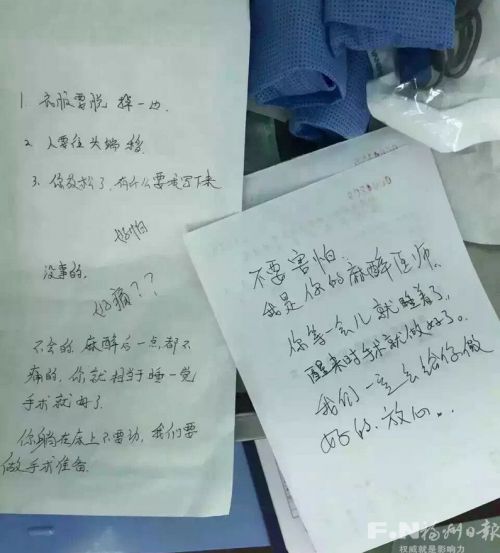 1. 衣服要脱 掉一边.
2. 人要往头端移.
3. 你放松了,有什么要求写下来
好怕
没事的.
好痛??
不会的.麻醉后一点都不
痛的,你就相当于睡一觉
手术就好了.
你躺在床上不要动,我们要
做手术准备.
不要害怕.
我是你的麻醉医师.
你等一会儿就睡着了,
醒来时手术就做好了。
我们一定会给你做
好的.放心...
F.N福州日报
权威就是影响力